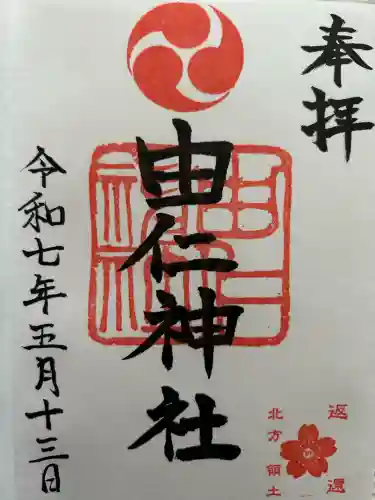 奉拝
由仁神社
令和七年五月十三日
返還
北方領土